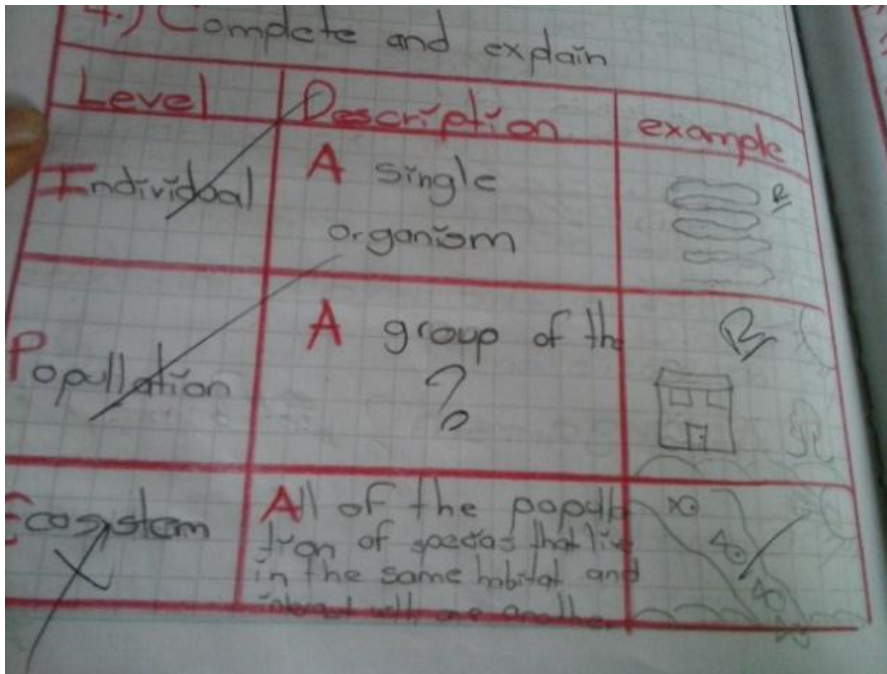 4.) Complete and explain
Level Description example
Individual A single
organism
Popullation A group of the
?
Ecosystem All of the popula
tion of species that live
in the same habitat and
interact with one another